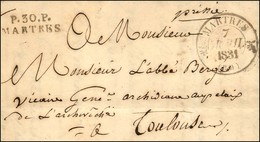 P.30.P.
MARTRES
MARTRES
7
1831
A Monsieur
Monsieur L'abbé Berger
Vicaire Gen.l archidiacre au palais
De L'archevêché
Toulouse